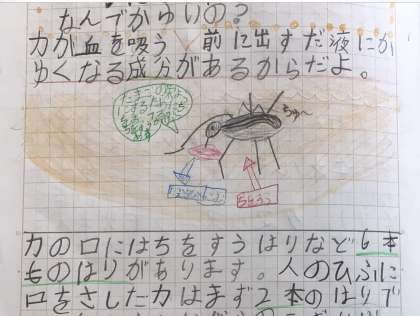 なんでかゆいの?
力が血を吸う 前に出すだ液にか
ゆくなる成分があるからだよ。
ちゅ〜
力の口にはちをすうはりなど6本
ものはりがあります。人のひふに
口をさした力はまず2本のはりで